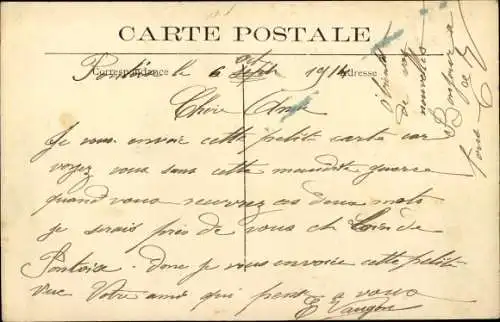 CARTE POSTALE
Correspondance
Adresse
Pontoise le 6 oct 1914
Chère Amie
Je vous envoie cette petit carte car
voyez vous sans cette maudite guerre
quand vous recevrez ces deux mots
je serais près de vous et loin de
Pontoise. donc je vous envoie cette petit
vue Votre ami qui pense a vous
E
de vos
nouvelles
Bonjour a